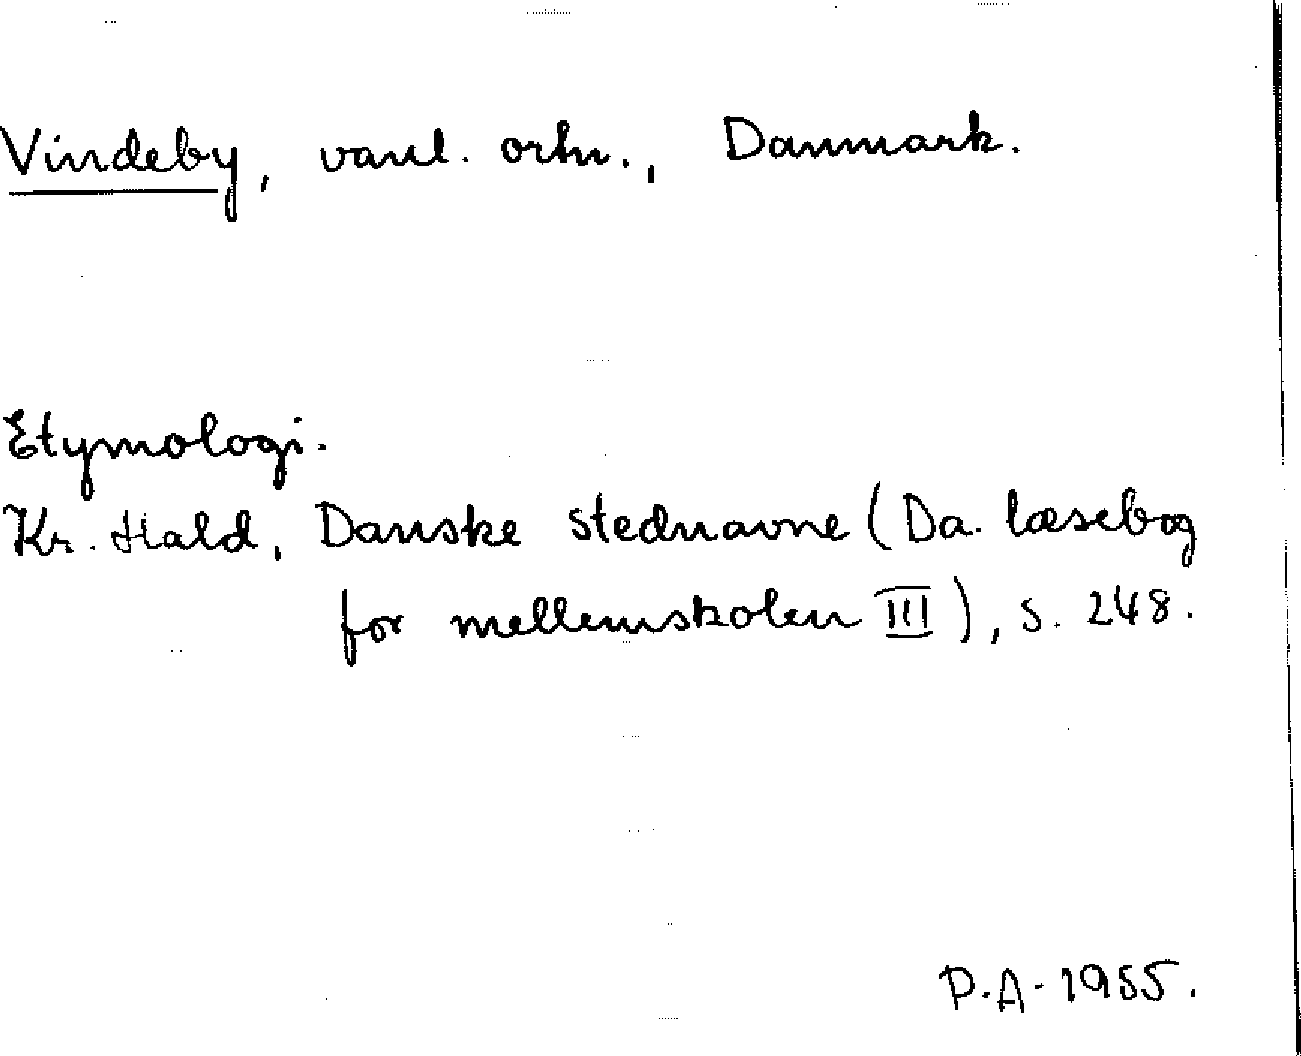 Vindeby, vanl. ortn., Danmark.
Etymologi.
Kr. Hald, Danske stednavne (Da. læsebog
for mellemskolen III), s. 248.
P.A. 1955.